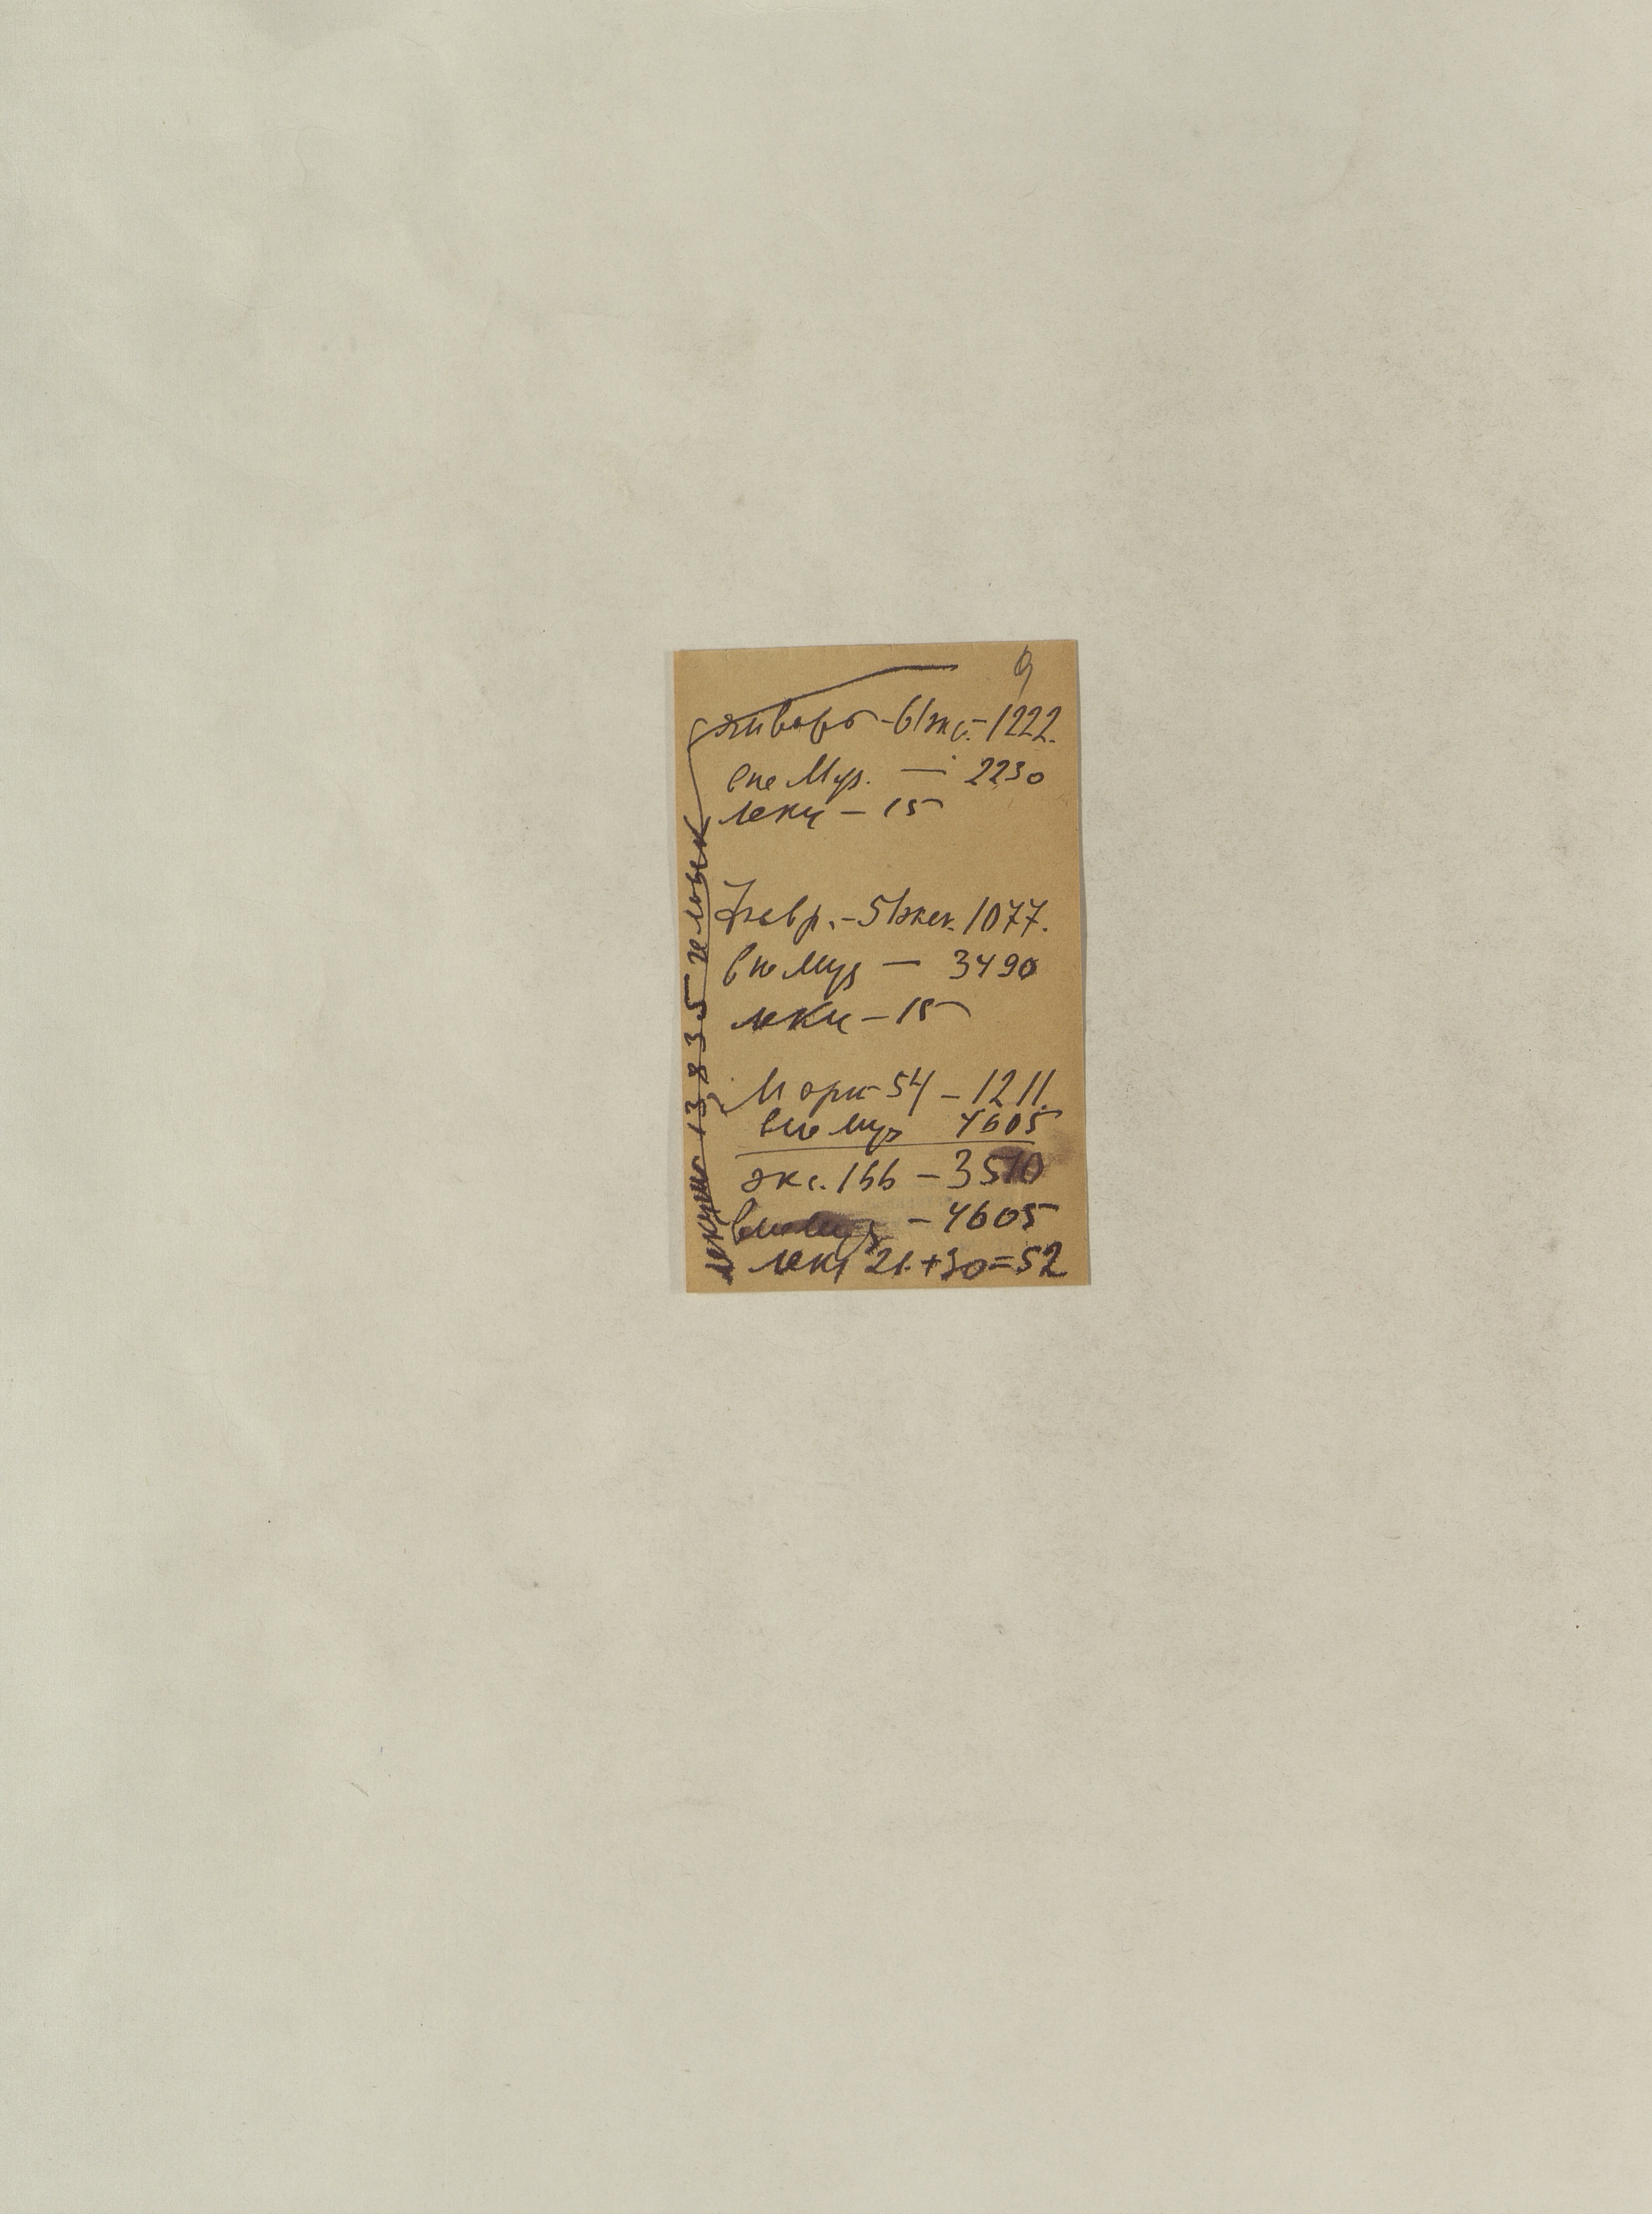 9
январь - 61 экс. - 1222.
вне Муз. — 2230
лекц — 15
Февр. - 51 экск. 1077.
вне Муз — 3490
лекц — 15
Март 54 — 1211.
вне муз 4605
экс. 166 — 3510
вне муз — 4605
лекц 21. + 30 = 52
лекции 13 835 человек